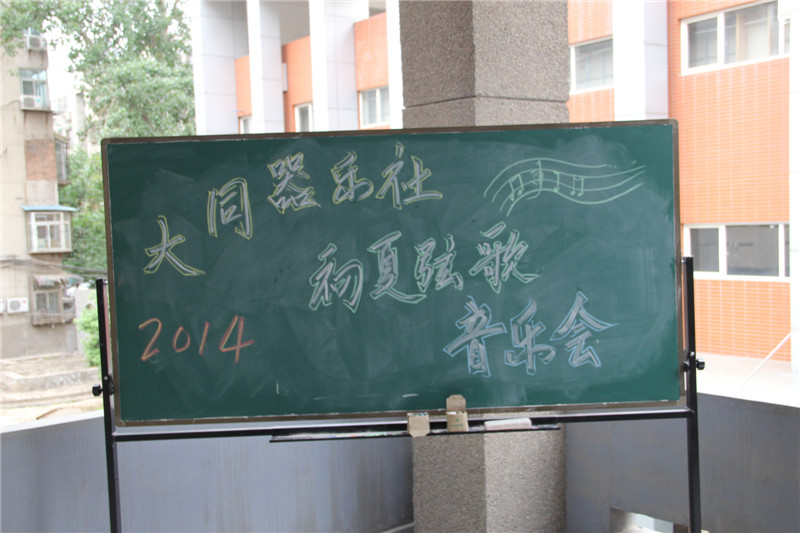 大同器乐社
初夏弦歌
2014
音乐会